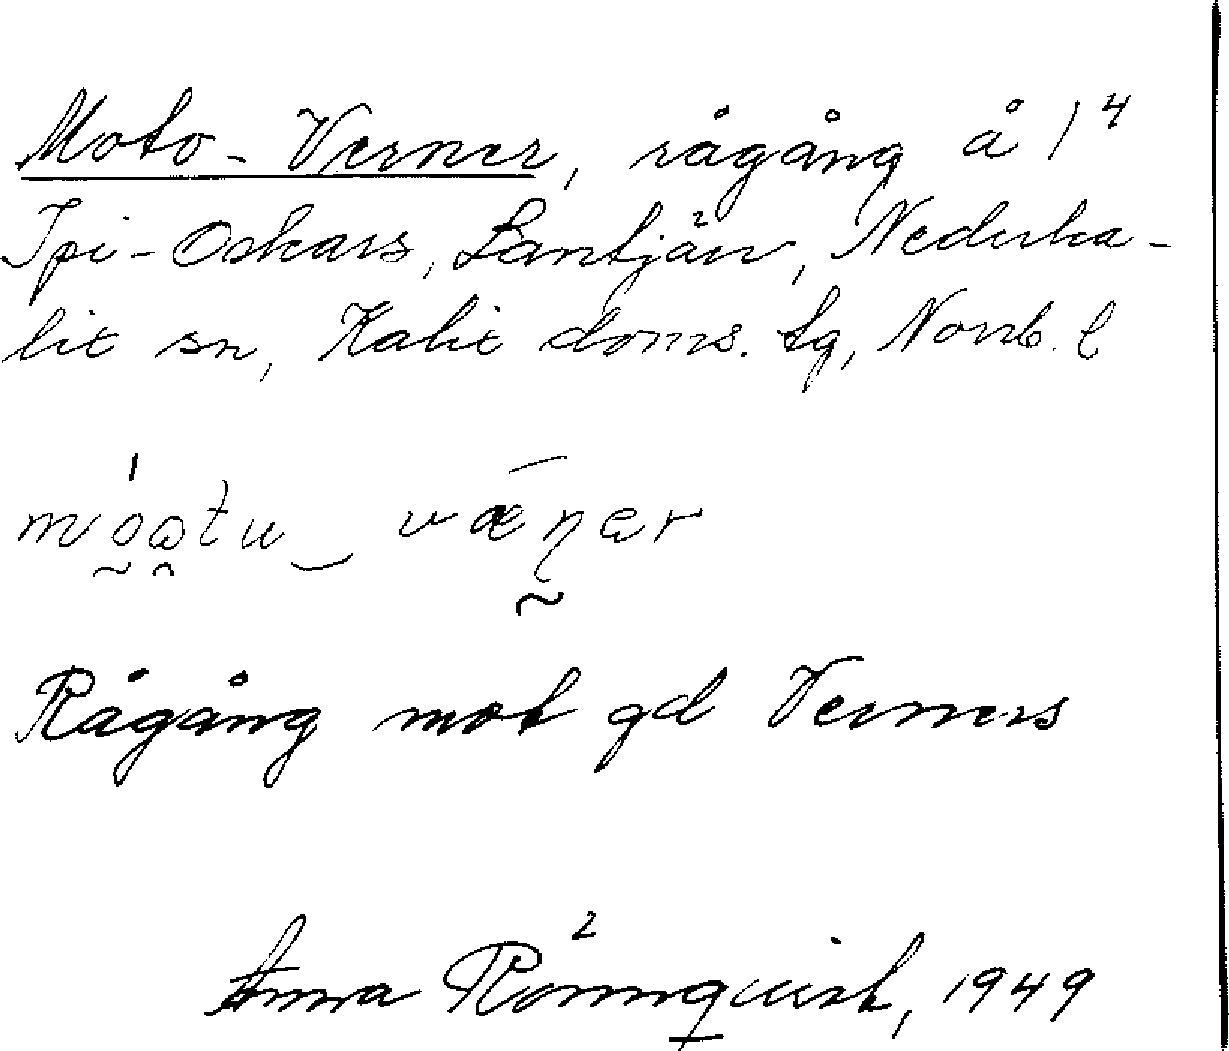 Moto-Verner, rågång å 1⁴
Ipi-Oskars, Säntjärv, Nederka-
lix sn, Kalix doms. tg, Norrb. l
Rågång mot gd Verners
Anna Rönnquist, 1949